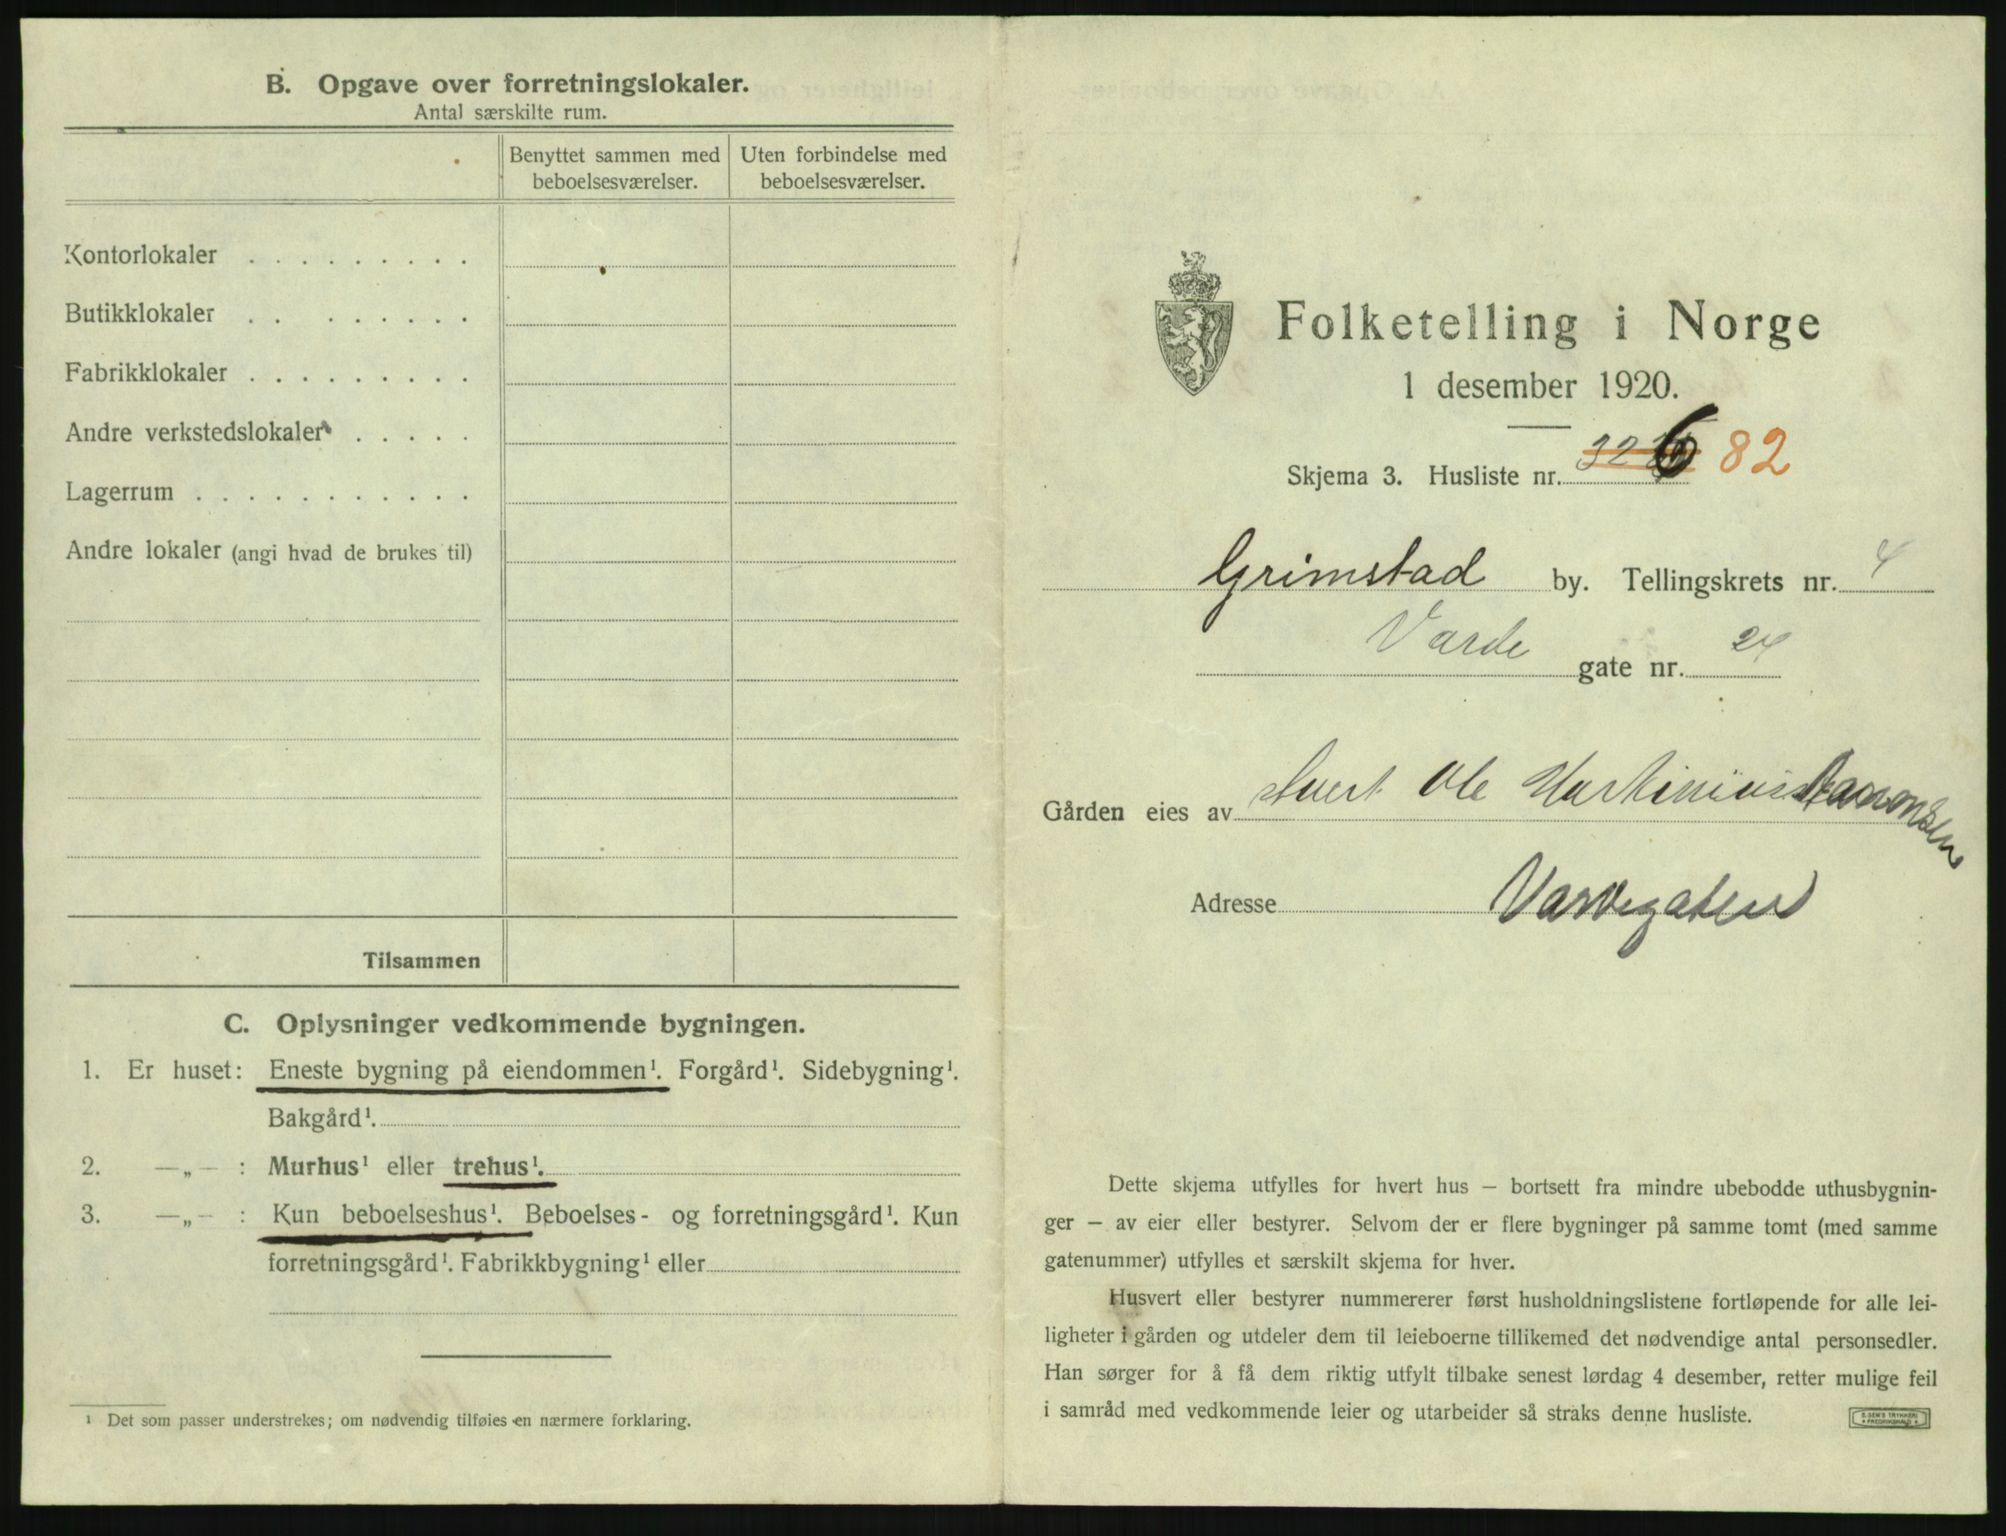 B. Opgave over forretningslokaler.
Antal særskilte rum.
Benyttet sammen med beboelsesværelser.
Uten forbindelse med beboelsesværelser.
Kontorlokaler
Butikklokaler
Fabrikklokaler
Andre verkstedslokaler
Lagerrum
Andre lokaler (angi hvad de brukes til)
Tilsammen
C. Oplysninger vedkommende bygningen.
1. Er huset: Eneste bygning på eiendommen¹. Forgård¹. Sidebygning¹.
Bakgård¹.
2. —„— : Murhus¹ eller trehus¹.
3. —„— : Kun beboelseshus¹. Beboelses- og forretningsgård¹. Kun
forretningsgård¹. Fabrikkbygning¹ eller
¹ Det som passer understrekes; om nødvendig tilføies en nærmere forklaring.
Folketelling i Norge
1 desember 1920.
Skjema 3. Husliste nr. 6 82
Grimstad by. Tellingskrets nr. 4
Varde gate nr. 24
Gården eies av Ole
Adresse Vardegaten
Dette skjema utfylles for hvert hus – bortsett fra mindre ubebodde uthusbygnin-
ger – av eier eller bestyrer. Selvom der er flere bygninger på samme tomt (med samme
gatenummer) utfylles et særskilt skjema for hver.
Husvert eller bestyrer nummererer først husholdningslistene fortløpende for alle lei-
ligheter i gården og utdeler dem til leieboerne tillikemed det nødvendige antal personsedler.
Han sørger for å få dem riktig utfylt tilbake senest lørdag 4 desember, retter mulige feil
i samråd med vedkommende leier og utarbeider så straks denne husliste.